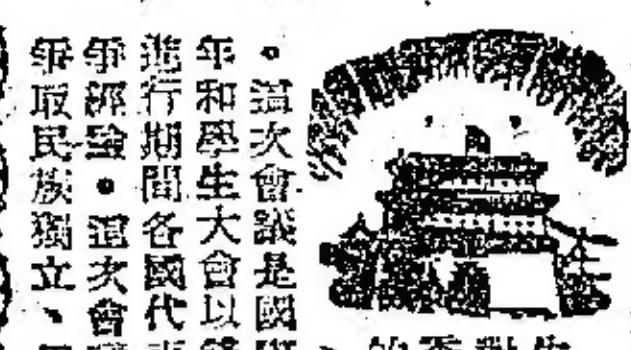 。這次會議是國
年和學生大會以
進行期間各國代
爭經驗。這次會
爭取民族獨立、